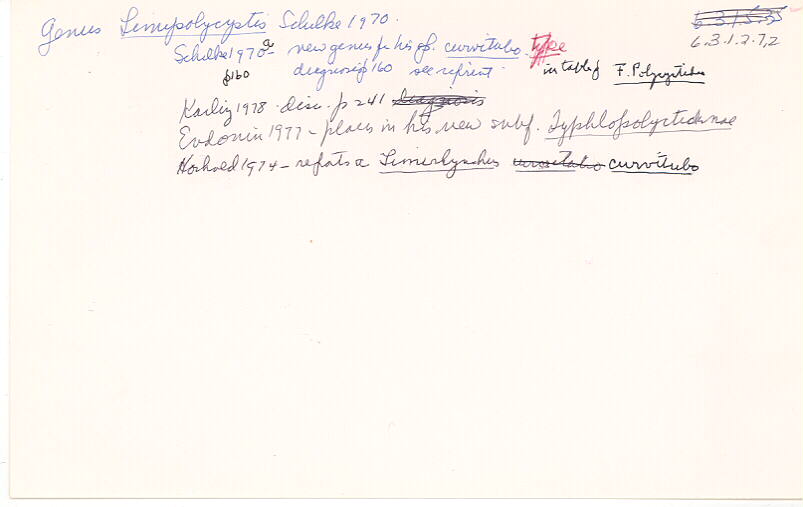 Genus Limipolycystis Schilke 1970.
6.3.1.5.5
6.3.1.2.7,2
Schilke 1970a - new genus for his sp. curvitubo. type
p160 diagnosis p160 see reprint. in table of F. Polycystidae
Karling 1978. disc. p 241 Diagnosis
Evdonin 1977 - places in his new subf. Typhlopolycystidinae
Hoxhold 1974 - refers to a Limirhynchus curvitubo curvitubo